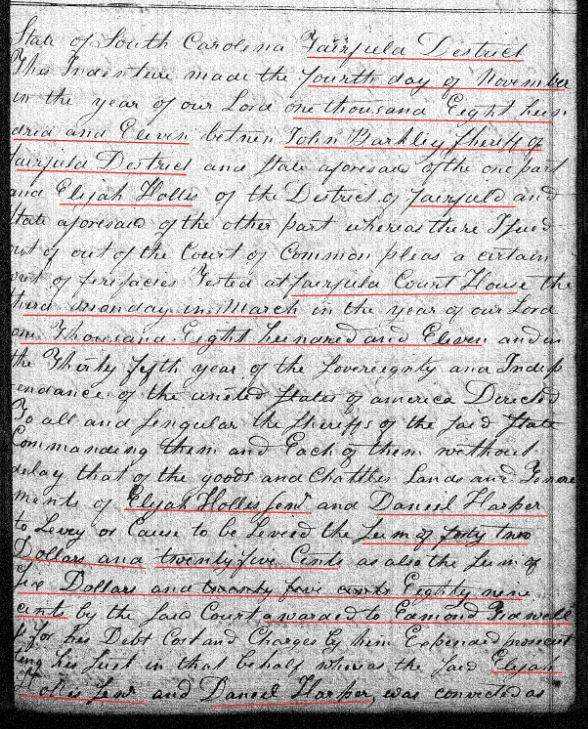 State of South Carolina Fairfield District
This Indenture made the fourth day of November
in the year of our Lord one thousand Eight hun
dred and Eleven between John Barkley Sheriff of
fairfield District and State aforesaid of the one part
and Elijah Hollis of the District of fairfield and
State aforesaid of the other part whereas there Issued
out of out of the Court of Common pleas a certain
writ of firefacies Tested at fairfield Court House the
third monday in March in the year of our Lord
one Thousand Eight hundred and Eleven and in
the Thirty fifth year of the Sovereignty and Indep
endance of the united States of america Directed
To all and Singular the Sheriffs of the Said State
Commanding them and Each of them without
delay that of the goods and Chattles Lands and Tene
ments of Elijah Hollis Senr and Daniel Harper
to Levey or Cause to be Levied the Sum of forty two
Dollars and twenty five Cents as also the Sum of
Six Dollars and twenty five cents Eighty nine
cents by the Said Court awarded to Edmond
for his Debt Cost and Charges by him Expended prosecut
ting his Suit in that behalf whereas the Said Elijah
Hollis Senr and Daniel Harper, was convicted as